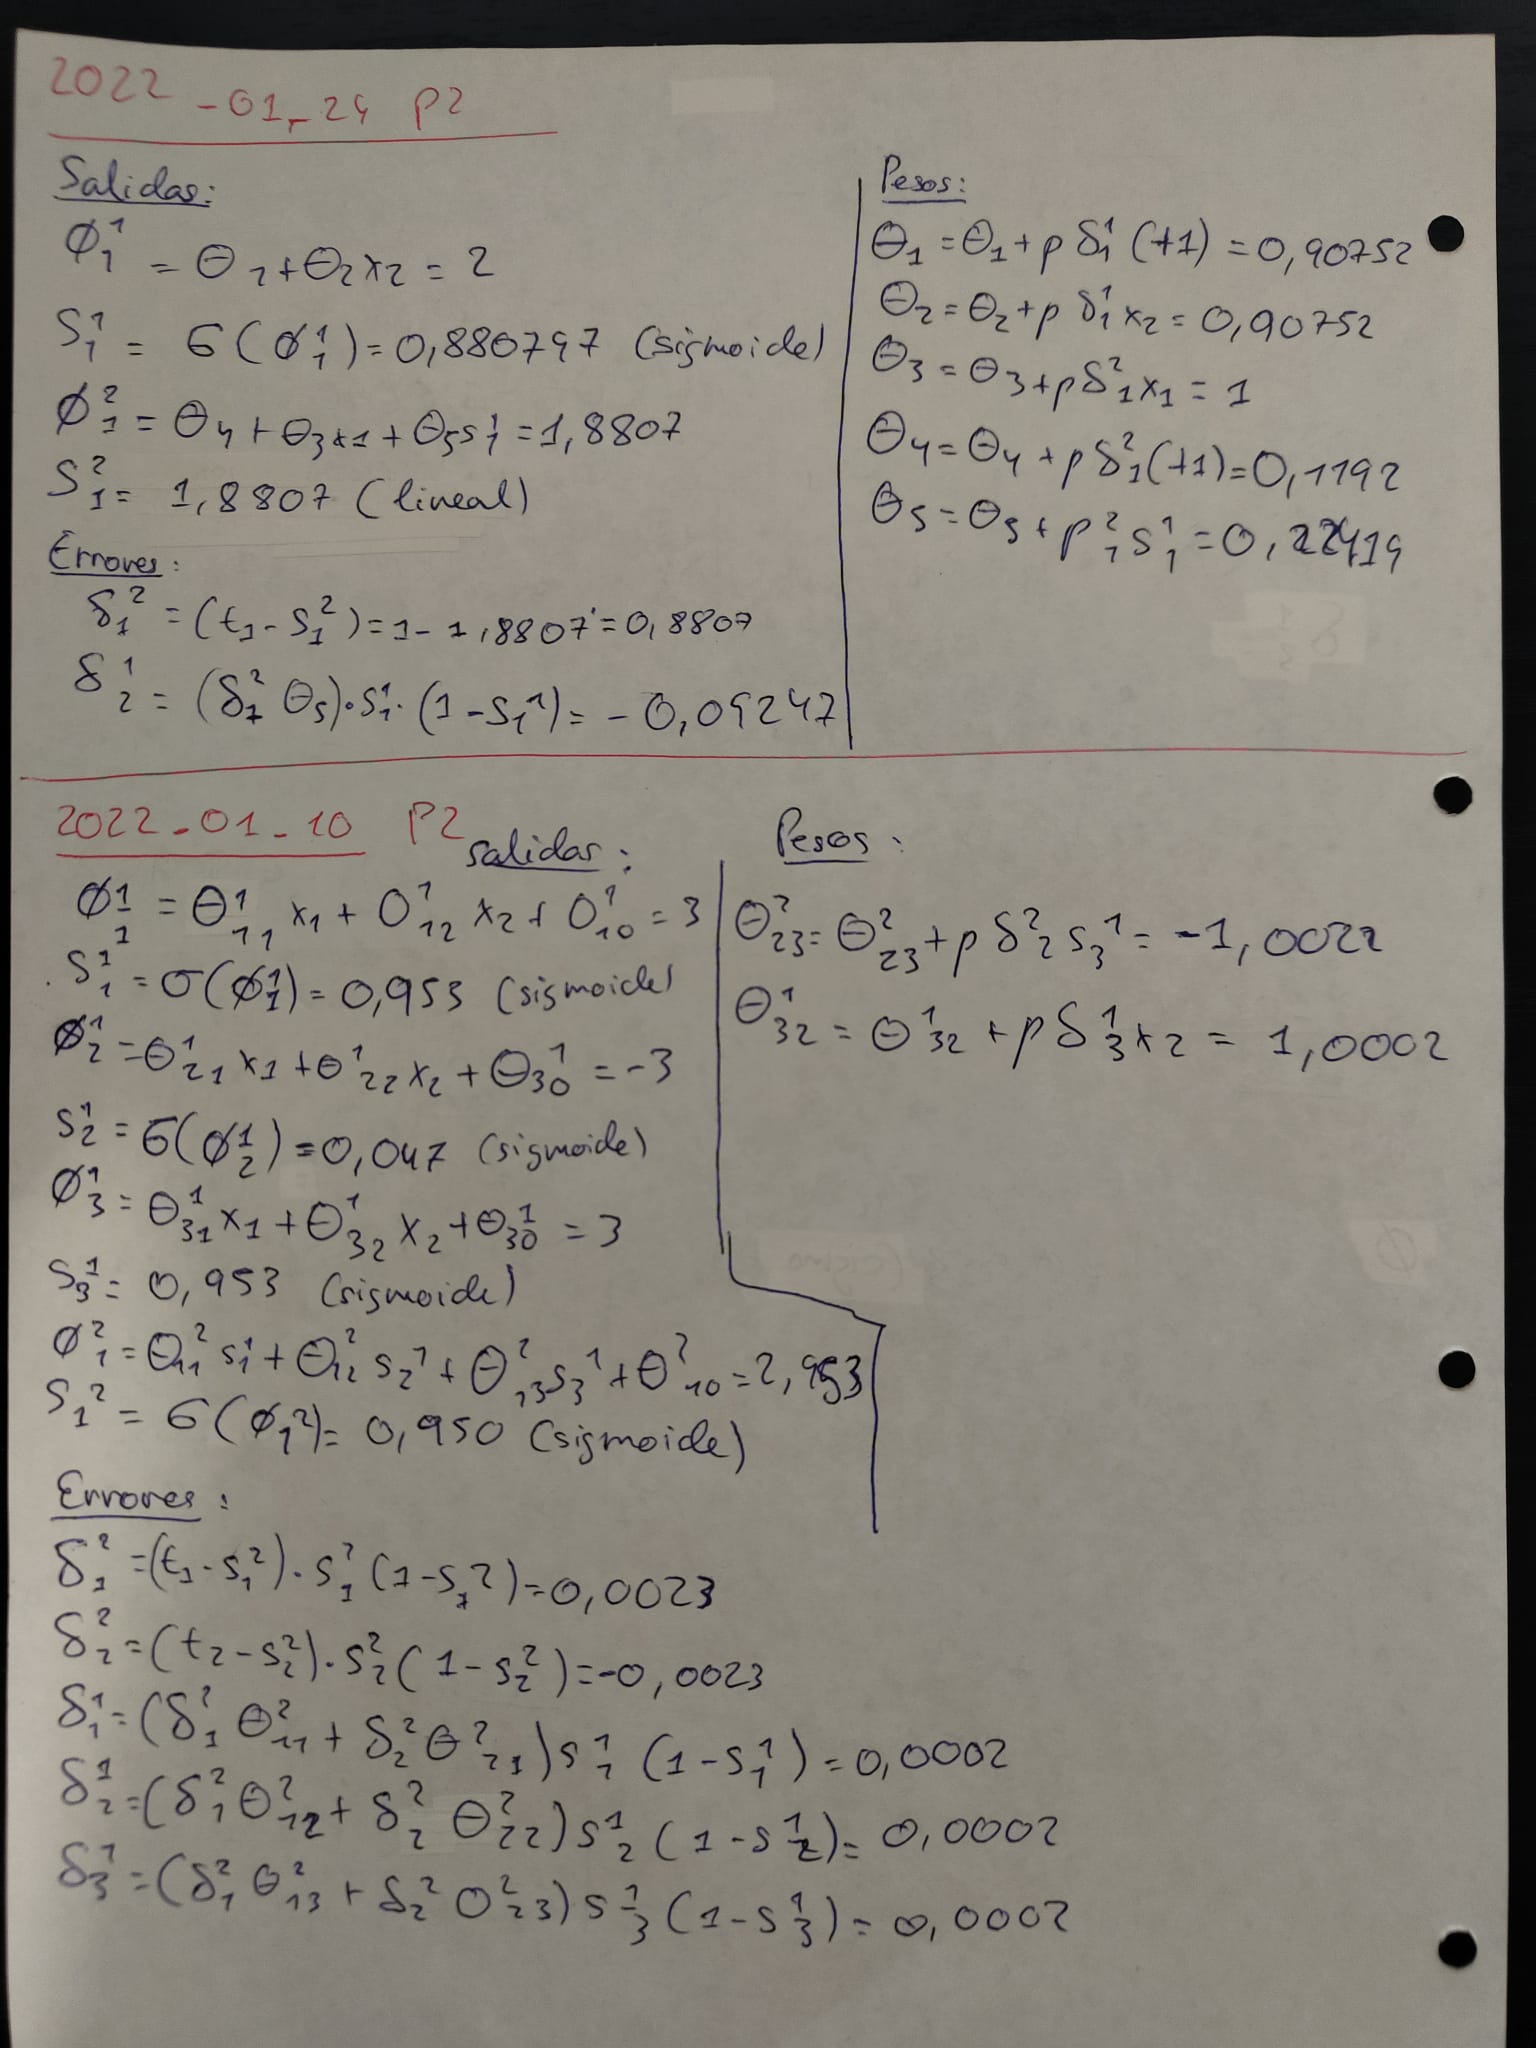 2022 -01-24 P2
Salidas:
φ₁¹ = θ₁+θ₂x₂ = 2
S₁¹ = σ(φ₁¹) = 0,880797 (sigmoide)
φ₁² = θ₄+θ₃x₁+θ₅s₁¹ = 1,8807
S₁² = 1,8807 (lineal)
Errores:
δ₁² = (t₁-S₁²) = 1-1,8807 = 0,8807
δ₂¹ = (δ₁² θ₅)·S₁¹·(1-S₁¹) = -0,09247
Pesos:
θ₁ = θ₁+ρ δ₁¹ (+1) = 0,90752
θ₂ = θ₂+ρ δ₁¹ x₂ = 0,90752
θ₃ = θ₃+ρδ₁²x₁ = 1
θ₄ = θ₄+ρδ₁²(+1) = 0,1192
θ₅ = θ₅+ρ₁²s₁¹ = 0,22419
2022-01-10 P2
Salidas:
φ₁¹ = θ₁₁¹ x₁ + θ₁₂¹ x₂ + θ₁₀¹ = 3
S₁¹ = σ(φ₁¹) = 0,953 (sigmoide)
φ₂¹ = θ₂₁¹ x₁+θ₂₂¹ x₂+θ₃₀¹ = -3
S₂¹ = σ(φ₂¹) = 0,047 (sigmoide)
φ₃¹ = θ₃₁¹ x₁+θ₃₂¹ x₂+θ₃₀¹ = 3
S₃¹ = 0,953 (sigmoide)
φ₁² = θ₁₁² s₁¹+θ₁₂² s₂¹+θ₁₃² s₃¹+θ₁₀² = 2,953
S₁² = σ(φ₁²) = 0,950 (sigmoide)
Errores:
δ₁² = (t₁-s₁²)·s₁² (1-s₁²) = 0,0023
δ₂² = (t₂-s₂²)·s₂² (1-s₂²) = -0,0023
δ₁¹ = (δ₁² θ₁₁² + δ₂² θ₂₁²)s₁¹ (1-s₁¹) = 0,0002
δ₂¹ = (δ₁² θ₁₂² + δ₂² θ₂₂²)s₂¹ (1-s₂¹) = 0,0002
δ₃¹ = (δ₁² θ₁₃² + δ₂² θ₂₃²)s₃¹ (1-s₃¹) = 0,0002
Pesos:
θ₂₃² = θ₂₃²+ρ δ₂² s₃¹ = -1,0022
θ₃₂¹ = θ₃₂¹+ρ δ₃¹x₂ = 1,0002